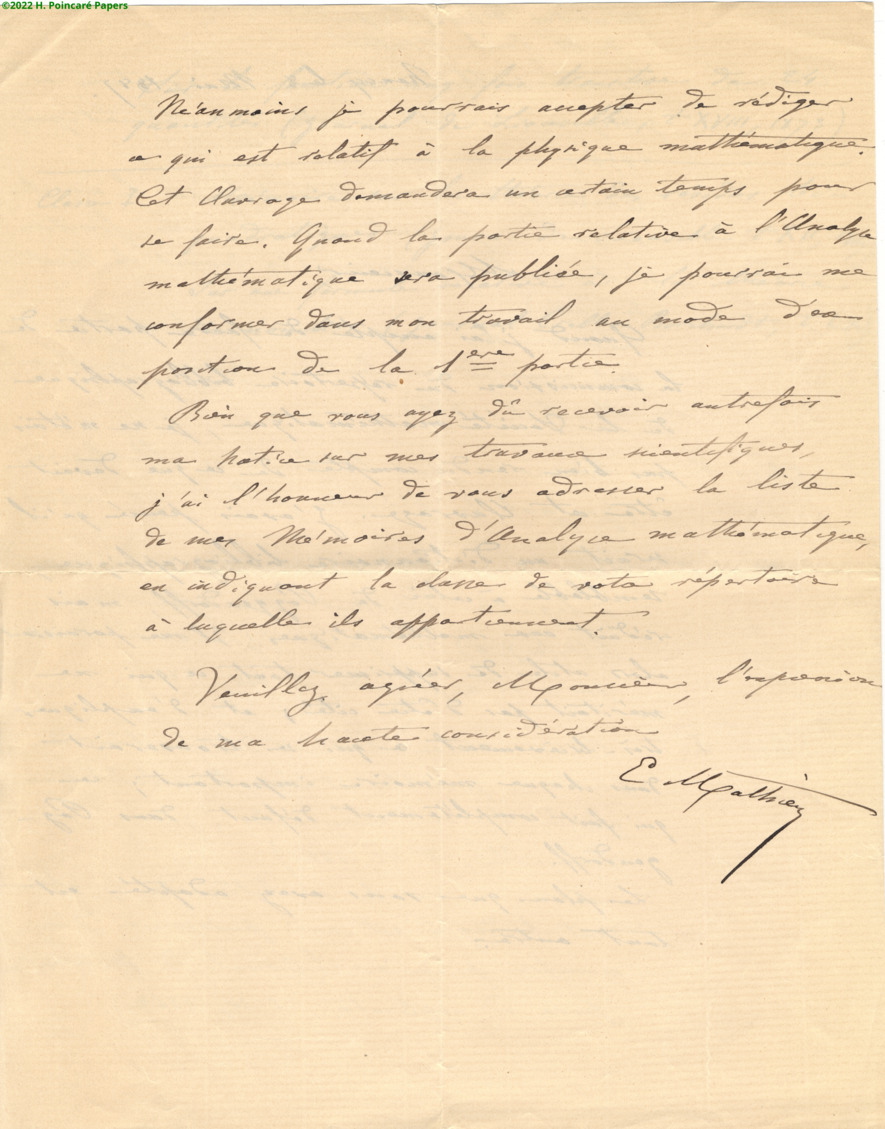 ©2022 H. Poincaré Papers
Néanmoins je pourrais accepter de rédiger
ce qui est relatif à la physique mathématique.
Cet Ouvrage demandera un certain temps pour
se faire. Quand la partie relative à l'Analyse
mathématique sera publiée, je pourrai me
conformer dans mon travail au mode d'ex
position de la 1ère partie.
Bien que vous ayez dû recevoir autrefois
ma Notice sur mes travaux scientifiques,
j'ai l'honneur de vous adresser la liste
de mes Mémoires d'Analyse mathématique,
en indiquant la classe de votre répertoire
à laquelle ils appartiennent.
Veuillez agréer, Monsieur, l'expression
de ma haute considération
E Mathieu